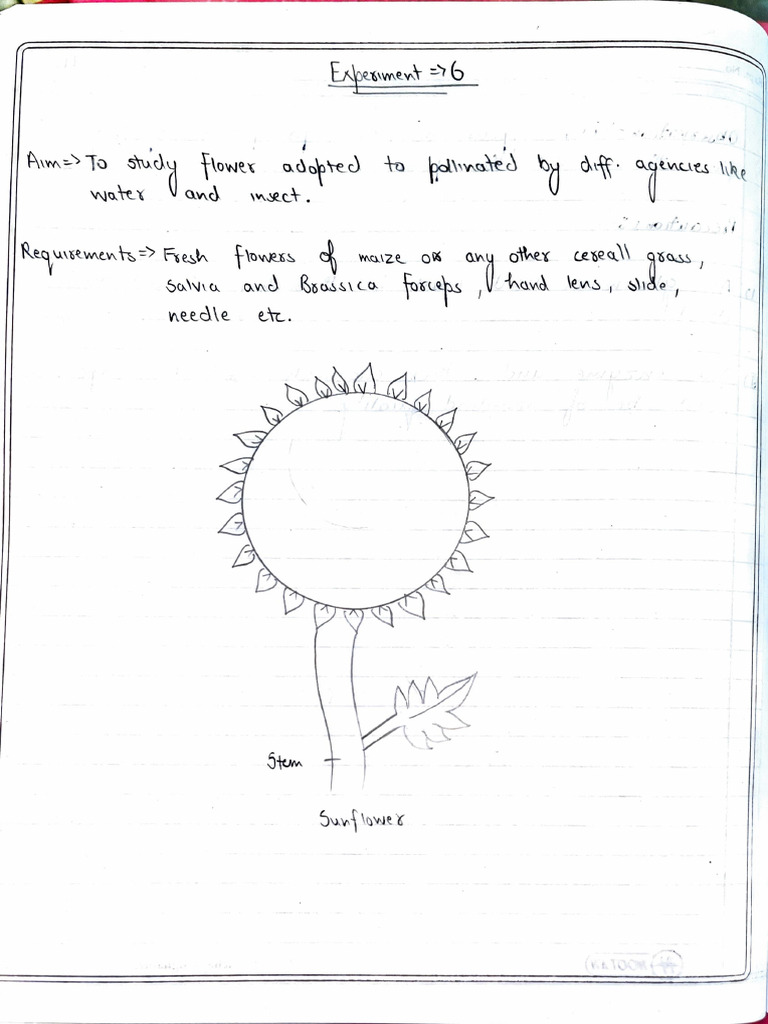 Experiment => 6
Aim => To study flower adopted to pollinated by diff. agencies like
water and insect.
Requirements => Fresh flowers of maize or any other cereall grass,
Salvia and Brassica forceps, hand lens, slide,
needle etc.
Stem
Sunflower